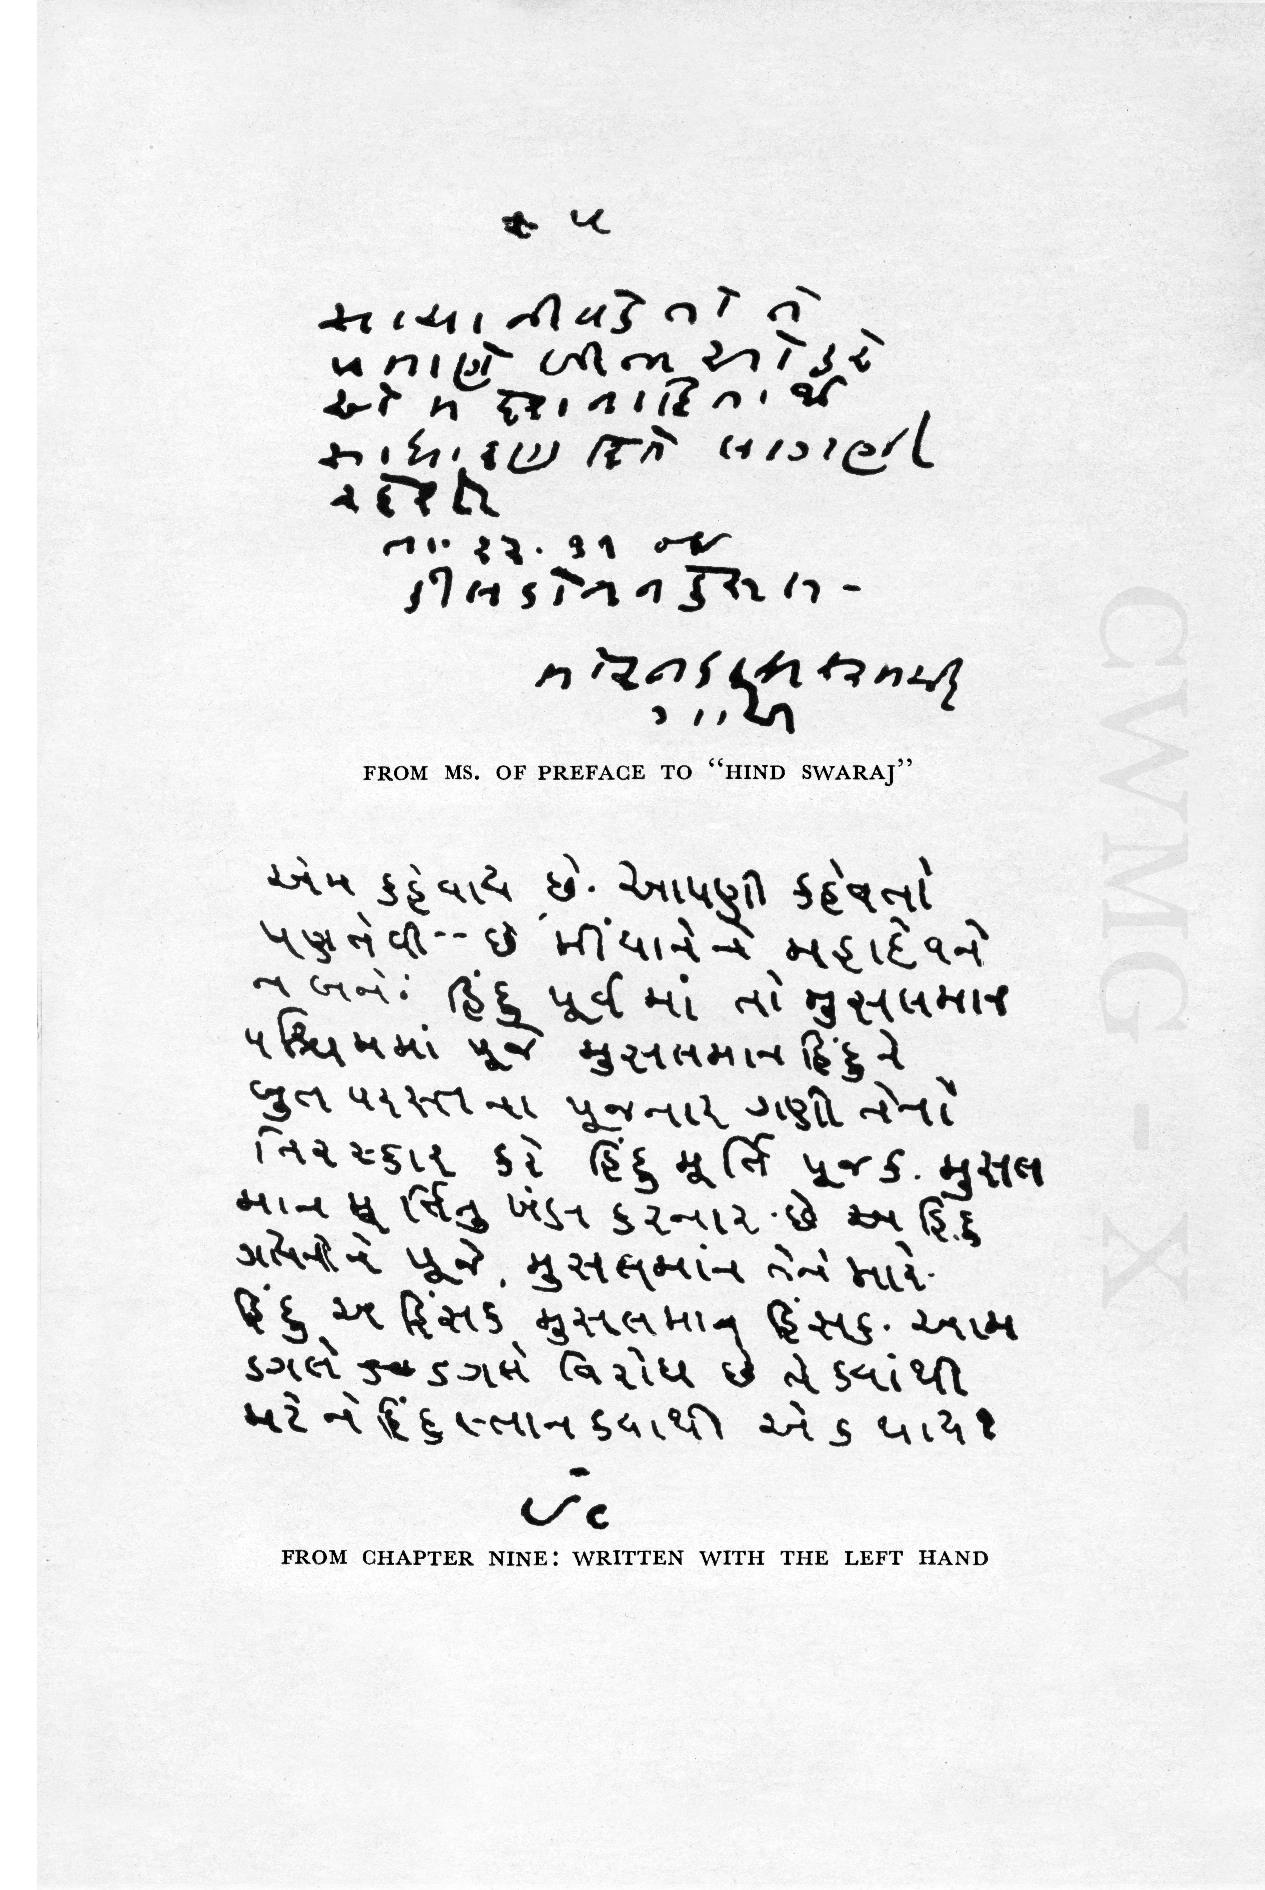 ૨ ૫
સાચા નીવડે તો તે
પ્રમાણે બીજાઓ કરે
એમ દેશના હિતાર્થે
સાધારણ રિતે લાગણી
રહેશે
તા. ૨૨. ૧૧ ૦૯
કીલડોનન કેસલ -
મોહનદાસ કરમચંદ
ગાંધી
FROM MS. OF PREFACE TO “HIND SWARAJ”
એમ કહેવાય છે. આપણી કહેવતો
પણ તેવી -- છે મીંયાને ને મહાદેવને
ન બને: હિંદુ પૂર્વ માં તો મુસલમાન
પશ્ચિમમાં પૂજે મુસલમાન હિંદુને
બુત પરસ્ત ના પૂજનાર ગણી તેનો
તિરસ્કાર કરે હિંદુ મૂર્તિ પૂજક. મુસલ
માન મૂર્તિનુ ખંડન કરનાર છે હિંદુ
ગાયને પૂજે, મુસલમાંન તેને મારે.
હિંદુ અહિંસક મુસલમાન હિંસક. આમ
ડગલે ડગલે વિરોધ છે તે ક્યાંથી
મટે ને હિંદુસ્તાન ક્યાથી એક થાય?
FROM CHAPTER NINE: WRITTEN WITH THE LEFT HAND
CWMG - X